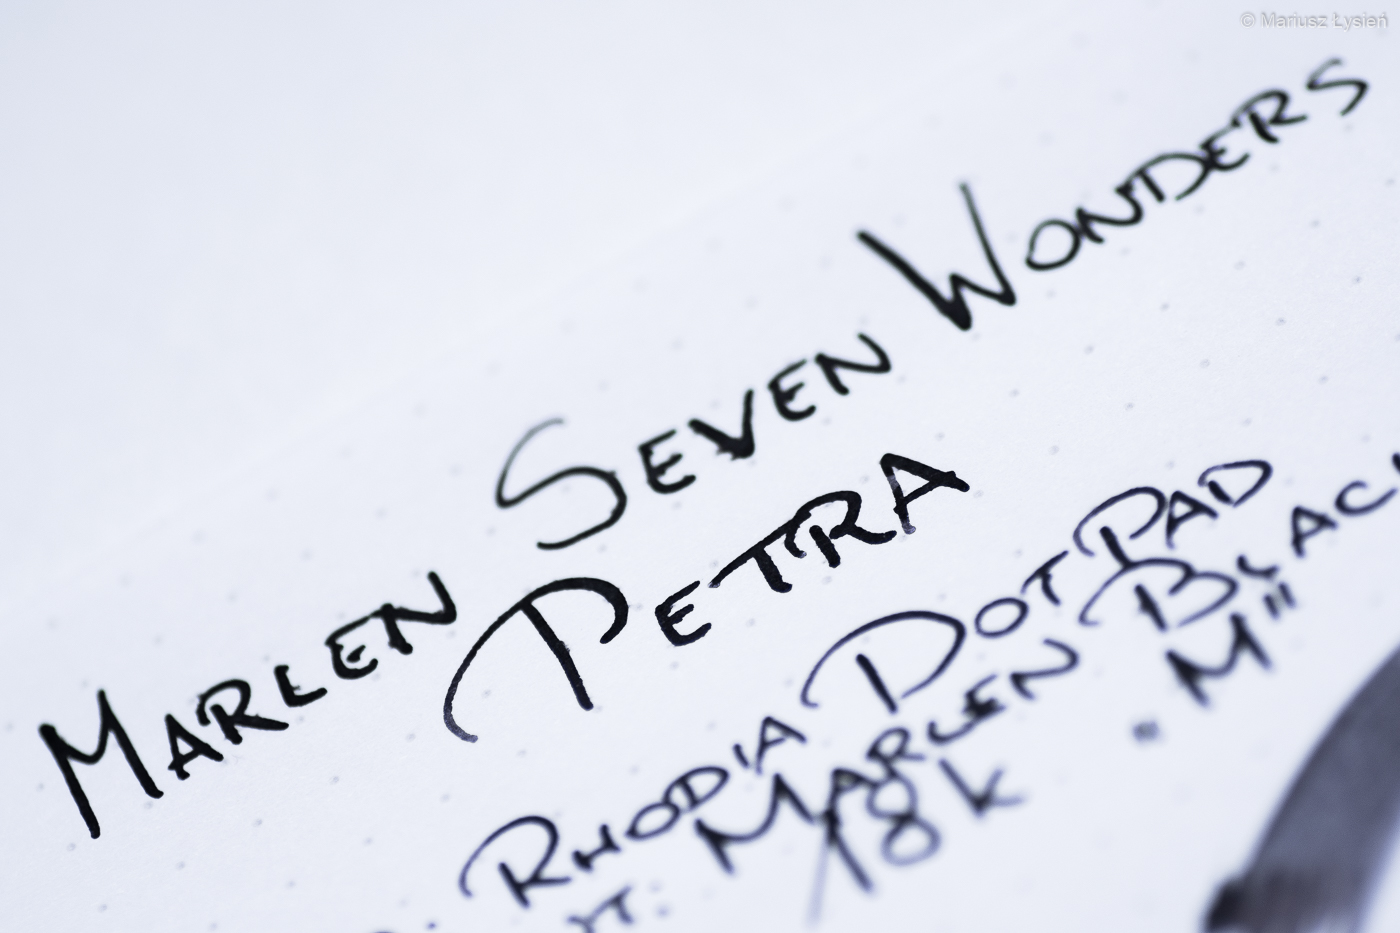 © Mariusz Łysień
MARLEN SEVEN WONDERS
PETRA
RHODIA DOTPAD
MARLEN BLAC
18k "M"